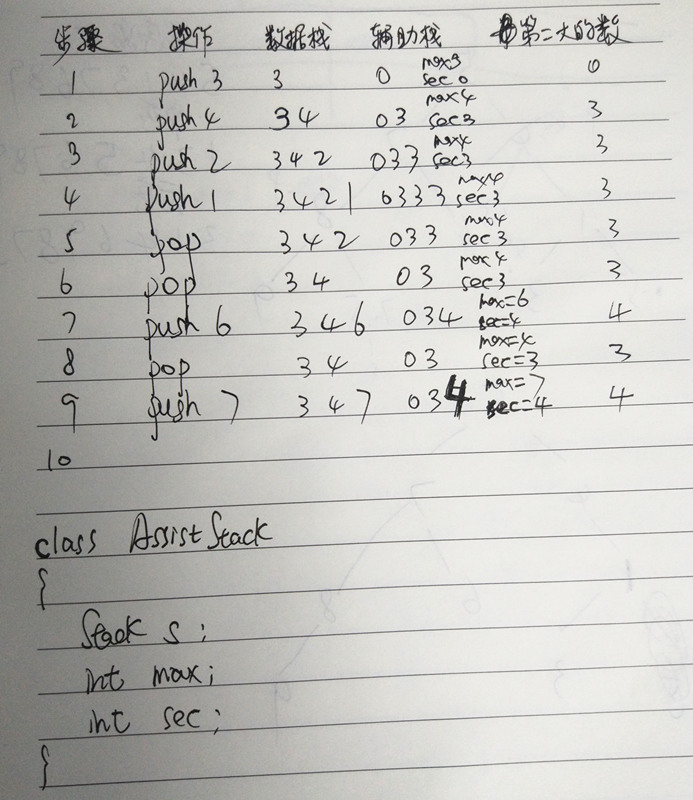 步骤 操作 数据栈 辅助栈 第二大的数
1 push 3 3 0 max3 sec0 0
2 push 4 34 03 max4 sec3 3
3 push 2 342 033 max4 sec3 3
4 push 1 3421 0333 max4 sec3 3
5 pop 342 033 max4 sec3 3
6 pop 34 03 max4 sec3 3
7 push 6 346 034 max=6 sec=4 4
8 pop 34 03 max=4 sec=3 3
9 push 7 347 034 max=7 sec=4 4
10
class AssistStack
{
Stack s;
int max;
int sec;
}